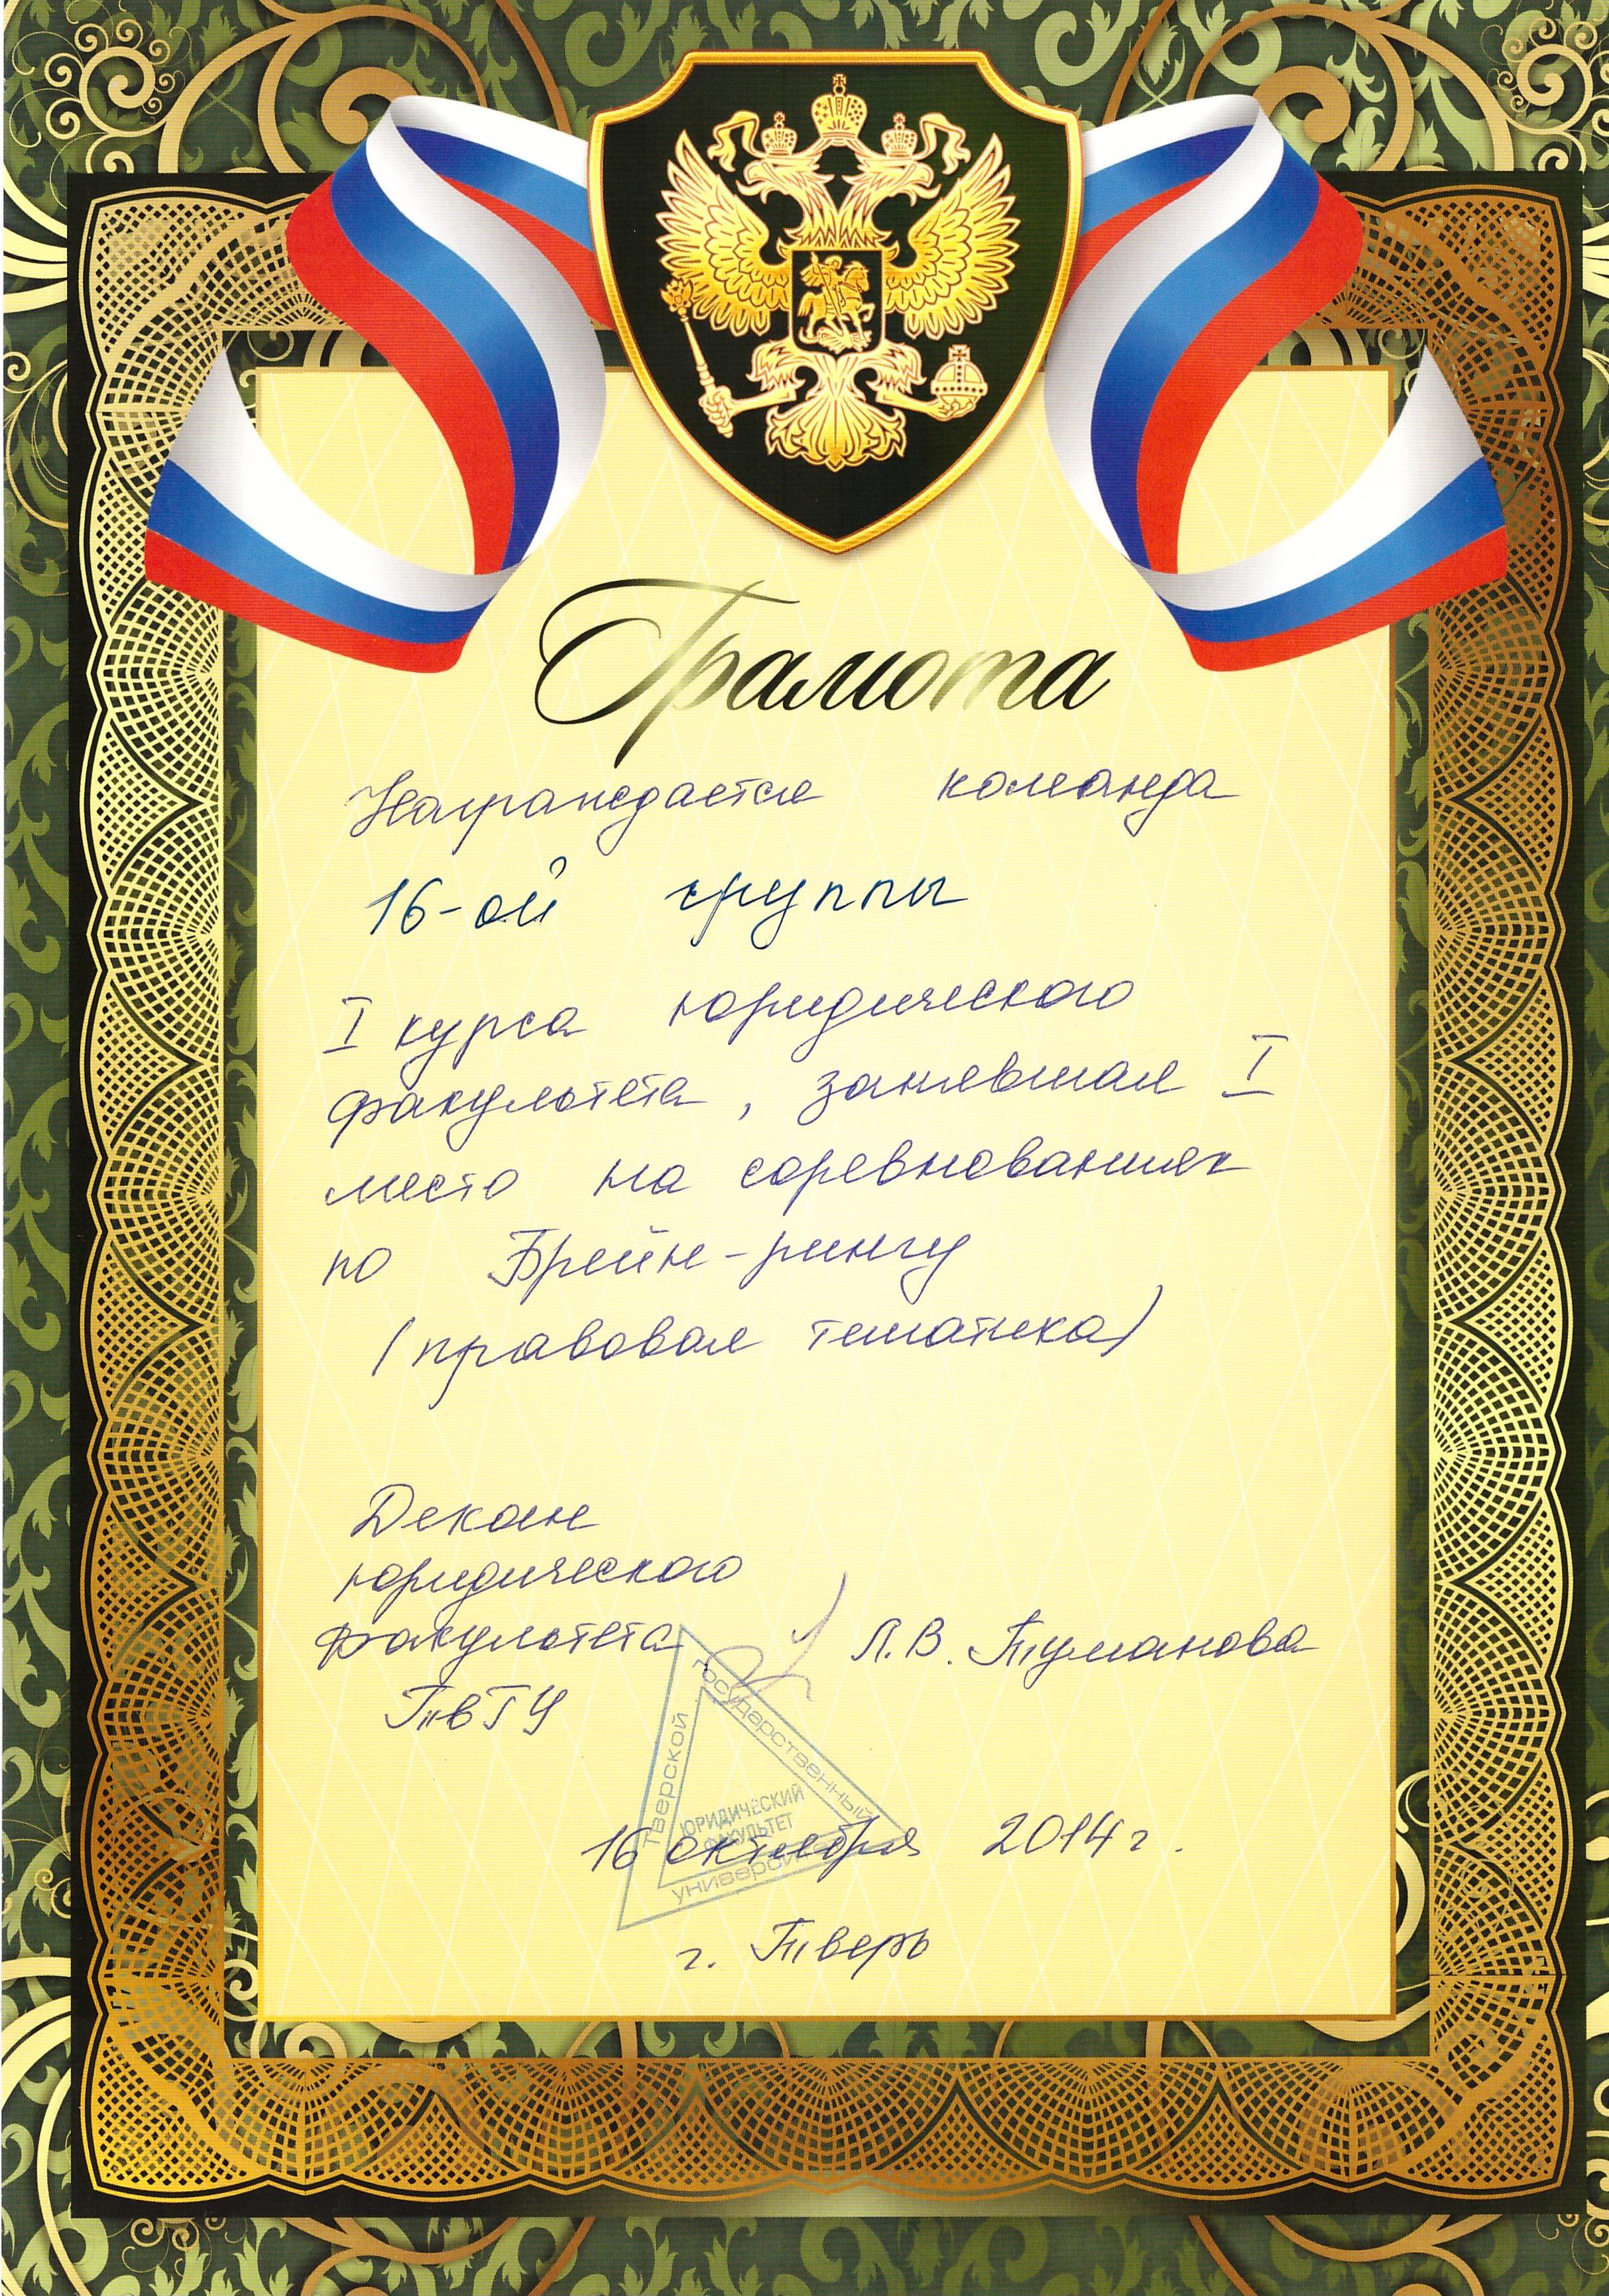 Грамота
Награждается команда
16-ой группы
I курса юридического
факультета, занявшая I
место на соревнованиях
по Брейн-рингу
(правовая тематика)
Декан
юридического
факультета Л.В. Туманова
ТвГУ
Тверской
государственный
университет
ЮРИДИЧЕСКИЙ
ФАКУЛЬТЕТ
16 октября 2014 г.
г. Тверь